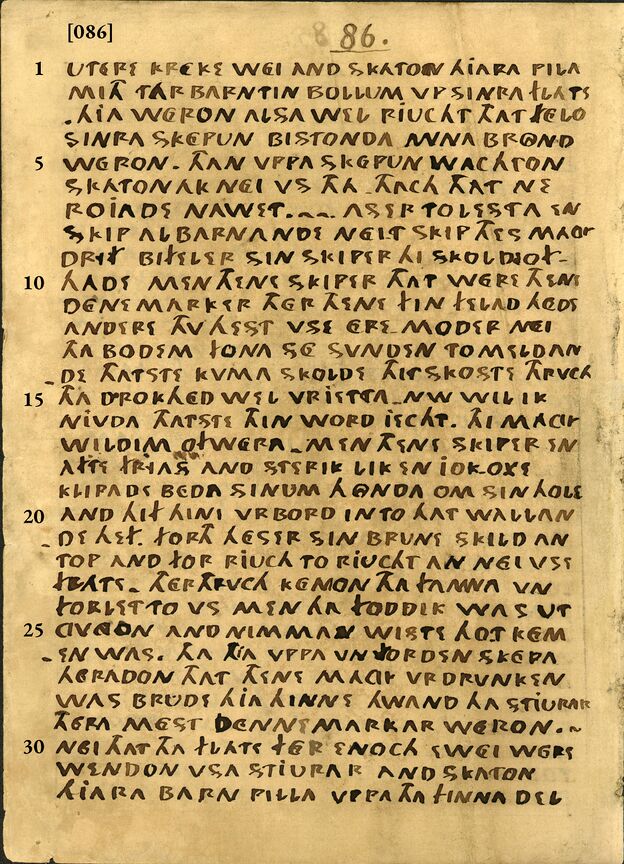 [086]
86.
1 UTERE KREKE WEI AND SKATON HIARA PILA
MITH THA BARNTIN BOLLUM VP SINRA FLATE
. HIA WERON ALSA WEL RIUCHT THAT FELO
SINRA SKEPUN BISTONDA ANNA BROND
5 WERON. THAN VPPA SKEPUN WACHTON
SKATON AK NEI VS THA - THACH THAT NE
ROIADE NAWET. AS ER TO LESTA EN
SKIP AL BARNANDE NEI T SKIP THES MAGY
DREF BIFEL ER SIN SKIPER HI SKOLD OF-
10 HADE MEN THENE SKIPER THAT WERE THENE
DENEMARKER THER THENE FIN FELAD HEDE
ANDERE THV HEST VSE ERE-MODER NEI
THA BODEM FONA SE SVNDEN TO MELDAN
-DE THATSTE KVMA SKOLDE THIT SKOSTE THRVCH
15 THA DROKHED WEL VRIETTA - NW WIL IK
NIVDA THATSTE THIN WORD IECHT. THI MAGY
WILD IM OFWERA - MEN THENE SKIPER EN
AFTE FRIAS AND STERIK LIK EN IOK-OXE
KLIPADE BEDA SINUM HONDA OM SIN HOLE
20 AND HIF HINI VRBORD INTO HAT WALLAN
-DE HEF. FORTH HES ER SIN BRUNE SKILD AN
TOP AND FOR RIUCHT TO RIUCHT AN NEI VSE
FLATE. THERTHRVCH KEMON THA FAMNA VN
FORLET TO VS MEN THA FODDIK WAS UT
25 GVNGON AND NIMMAN WISTE HO T KEM
-EN WAS. THA HIA VPPA VNFORDEN SKEPA
HERADON THAT THENE MAGY VRDRVNKEN
WAS BRUDE HIA HINNE HWAND THA STIURAR
THERA MEST DENNEMARKAR WERON.
30 NEI THAT THA FLATE FER ENOCH EWEI WERE
WENDON VSA STIURAR AND SKATON
HIARA BARN PILLA VPPA THA FINNA DEL